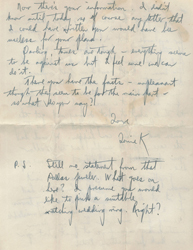 Now there's your information - I didn't
know until today so of course any letter that
I could have written you would have been
useless for your plans.
Darling, times are tough - everything seems
to be against us but I feel sure we can
do it.
There you have the facts - unpleasant
though they seem to be for the main part -
so what do you say?!
Love
K
P.S. Still no statement from that
jeweler. What goes on
here? I presume you would
like to pick a suitable
matching wedding ring. Right?